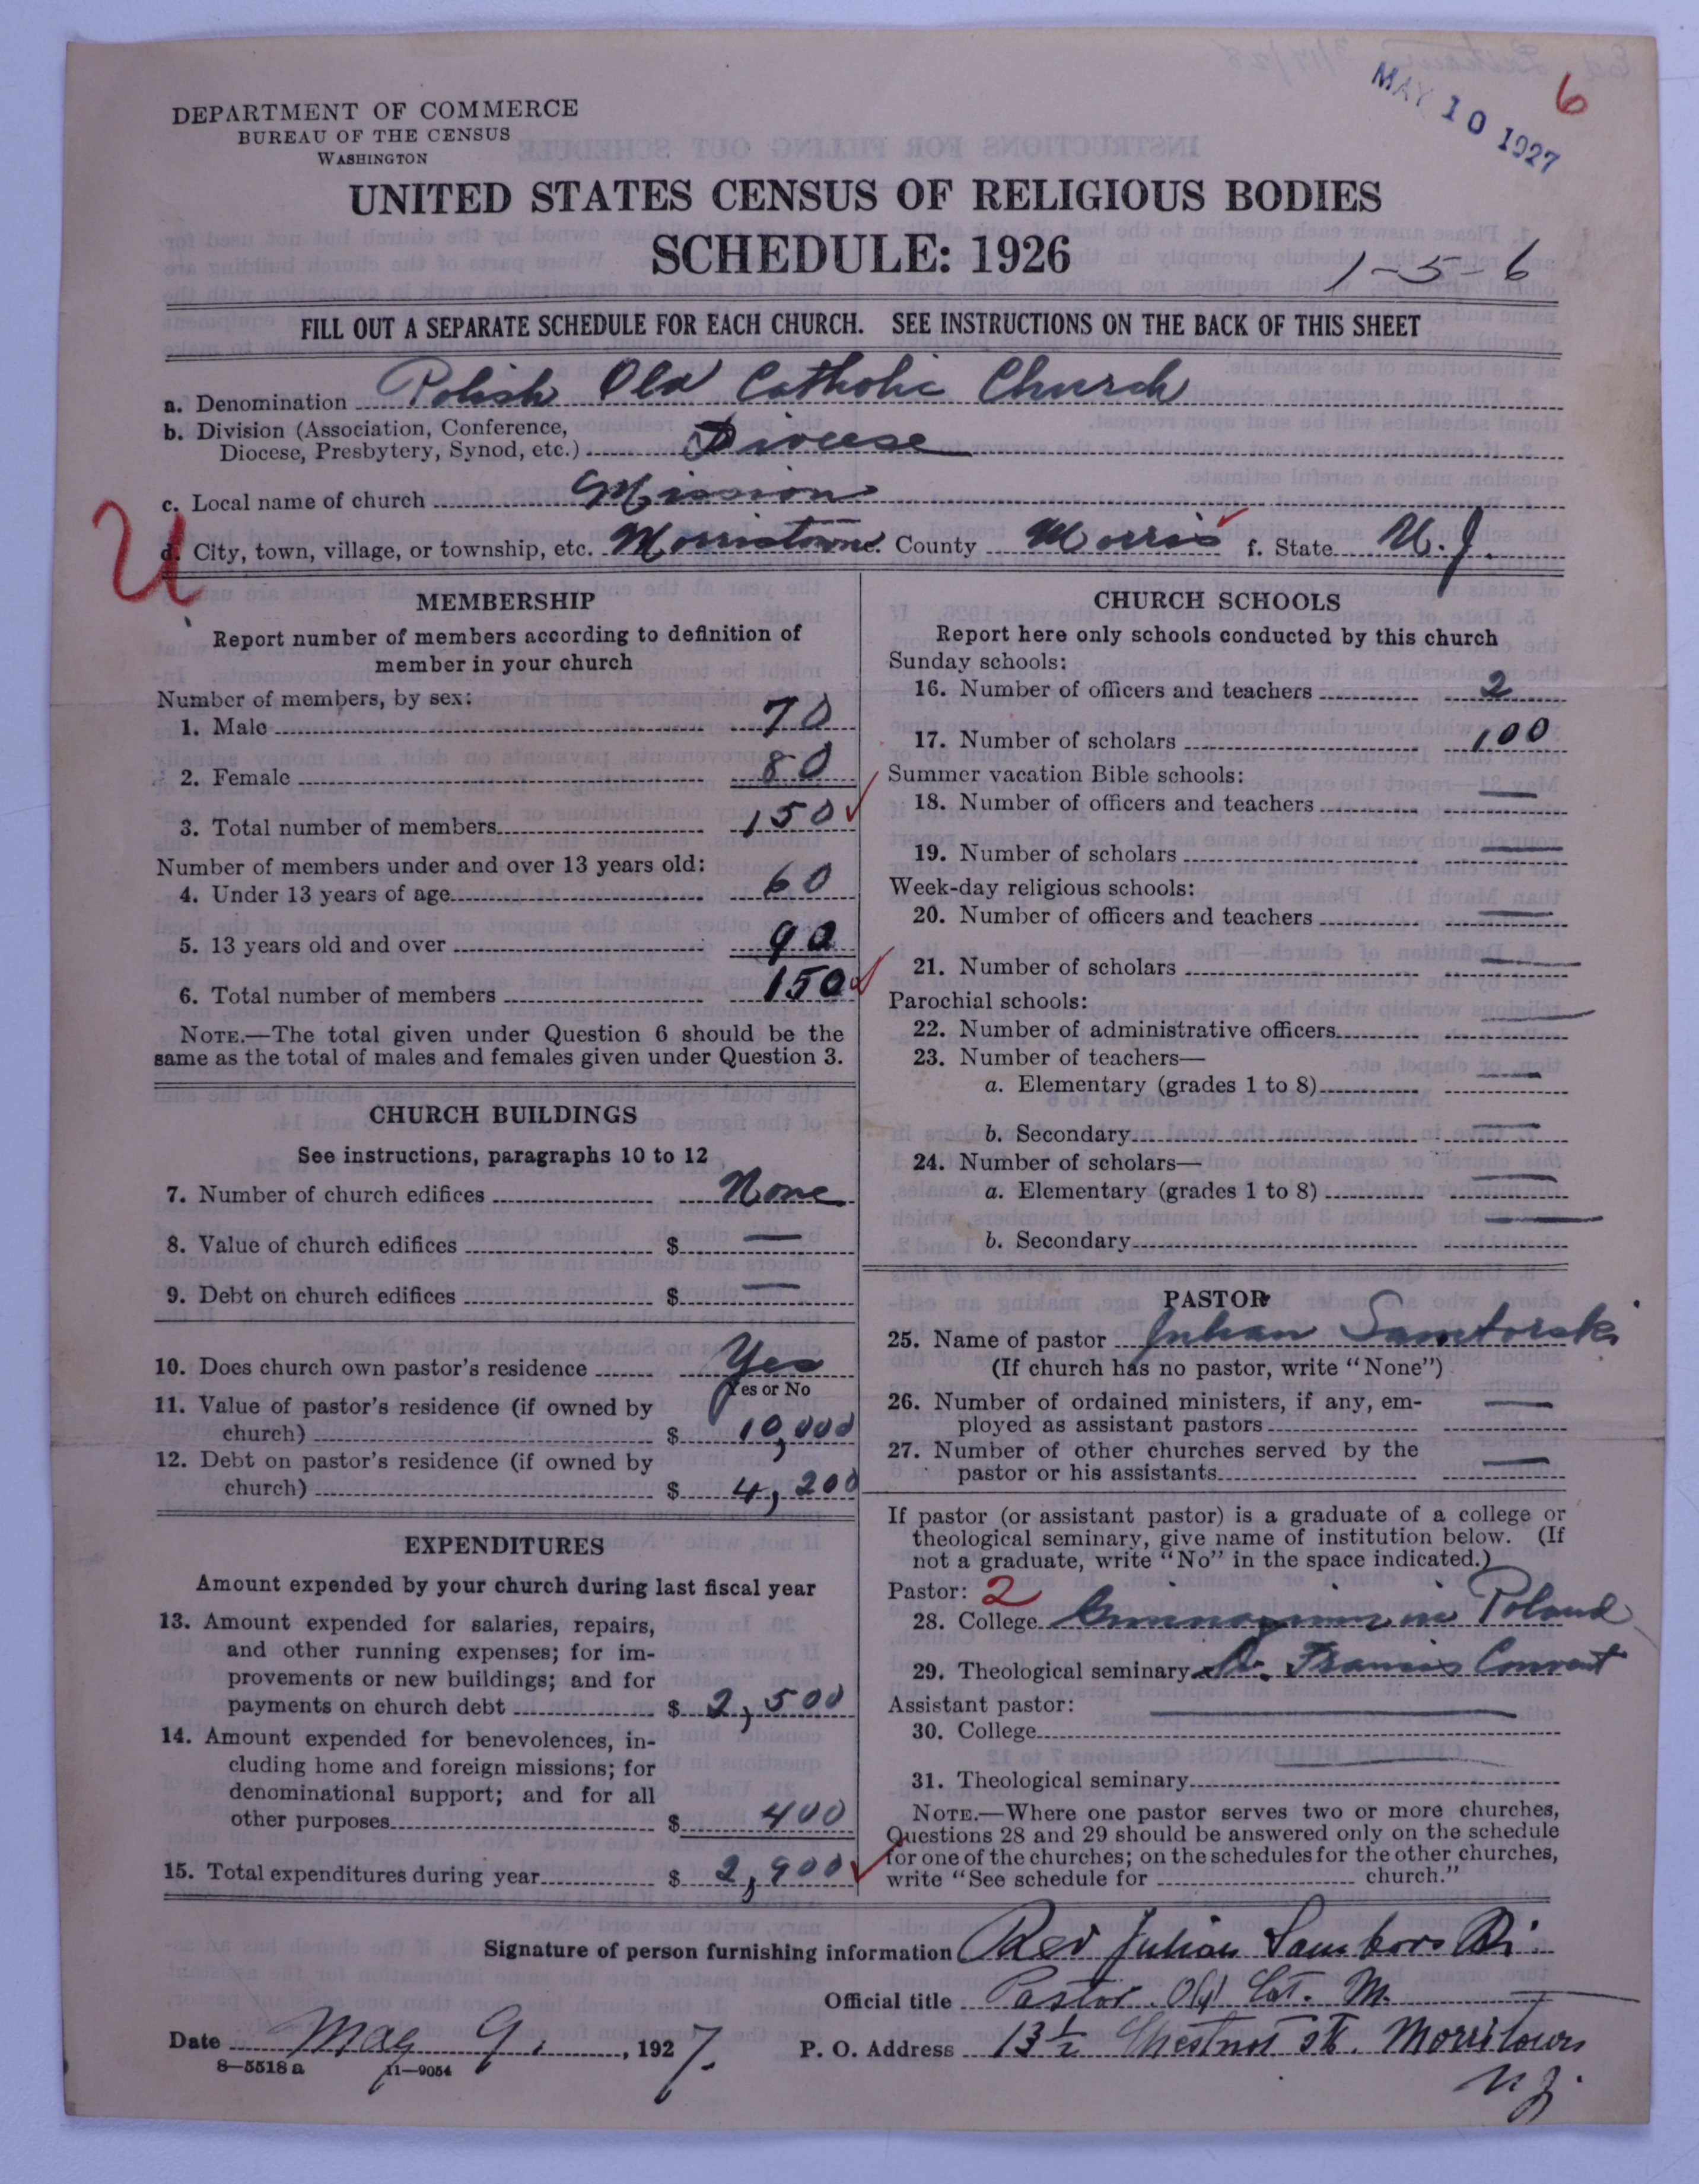 MAY 10 1927
6
DEPARTMENT OF COMMERCE
BUREAU OF THE CENSUS
WASHINGTON
UNITED STATES CENSUS OF RELIGIOUS BODIES
SCHEDULE: 1926
1-5-6
FILL OUT A SEPARATE SCHEDULE FOR EACH CHURCH. SEE INSTRUCTIONS ON THE BACK OF THIS SHEET
a. Denomination Polish Old Catholic Church
b. Division (Association, Conference,
Diocese, Presbytery, Synod, etc.) Diocese
c. Local name of church Mission
d. City, town, village, or township, etc. Morristown e. County Morris f. State N.J.
MEMBERSHIP
Report number of members according to definition of
member in your church
Number of members, by sex:
1. Male 70
2. Female 80
3. Total number of members 150
Number of members under and over 13 years old:
4. Under 13 years of age 60
5. 13 years old and over 90
6. Total number of members 150
NOTE.—The total given under Question 6 should be the
same as the total of males and females given under Question 3.
CHURCH BUILDINGS
See instructions, paragraphs 10 to 12
7. Number of church edifices None
8. Value of church edifices $ —
9. Debt on church edifices $ —
10. Does church own pastor's residence Yes
Yes or No
11. Value of pastor's residence (if owned by
church) $ 10,000
12. Debt on pastor's residence (if owned by
church) $ 4,200
EXPENDITURES
Amount expended by your church during last fiscal year
13. Amount expended for salaries, repairs,
and other running expenses; for im-
provements or new buildings; and for
payments on church debt $ 2,500
14. Amount expended for benevolences, in-
cluding home and foreign missions; for
denominational support; and for all
other purposes $ 400
15. Total expenditures during year $ 2,900
CHURCH SCHOOLS
Report here only schools conducted by this church
Sunday schools:
16. Number of officers and teachers 2
17. Number of scholars 100
Summer vacation Bible schools:
18. Number of officers and teachers —
19. Number of scholars —
Week-day religious schools:
20. Number of officers and teachers —
21. Number of scholars —
Parochial schools:
22. Number of administrative officers —
23. Number of teachers—
a. Elementary (grades 1 to 8) —
b. Secondary —
24. Number of scholars—
a. Elementary (grades 1 to 8) —
b. Secondary —
PASTOR
25. Name of pastor Julian Samborski
(If church has no pastor, write "None")
26. Number of ordained ministers, if any, em-
ployed as assistant pastors —
27. Number of other churches served by the
pastor or his assistants —
If pastor (or assistant pastor) is a graduate of a college or
theological seminary, give name of institution below. (If
not a graduate, write "No" in the space indicated.)
Pastor: 2
28. College in Poland
29. Theological seminary St. Francis Convent
Assistant pastor:
30. College —
31. Theological seminary —
NOTE.—Where one pastor serves two or more churches,
Questions 28 and 29 should be answered only on the schedule
for one of the churches; on the schedules for the other churches,
write "See schedule for church."
Signature of person furnishing information Rev Julian Samborski
Official title Pastor Old Cat. M.
Date May 9, 1927.
P. O. Address 13½ Chestnut St. Morristown
N.J.
8—5518 a 11—9054